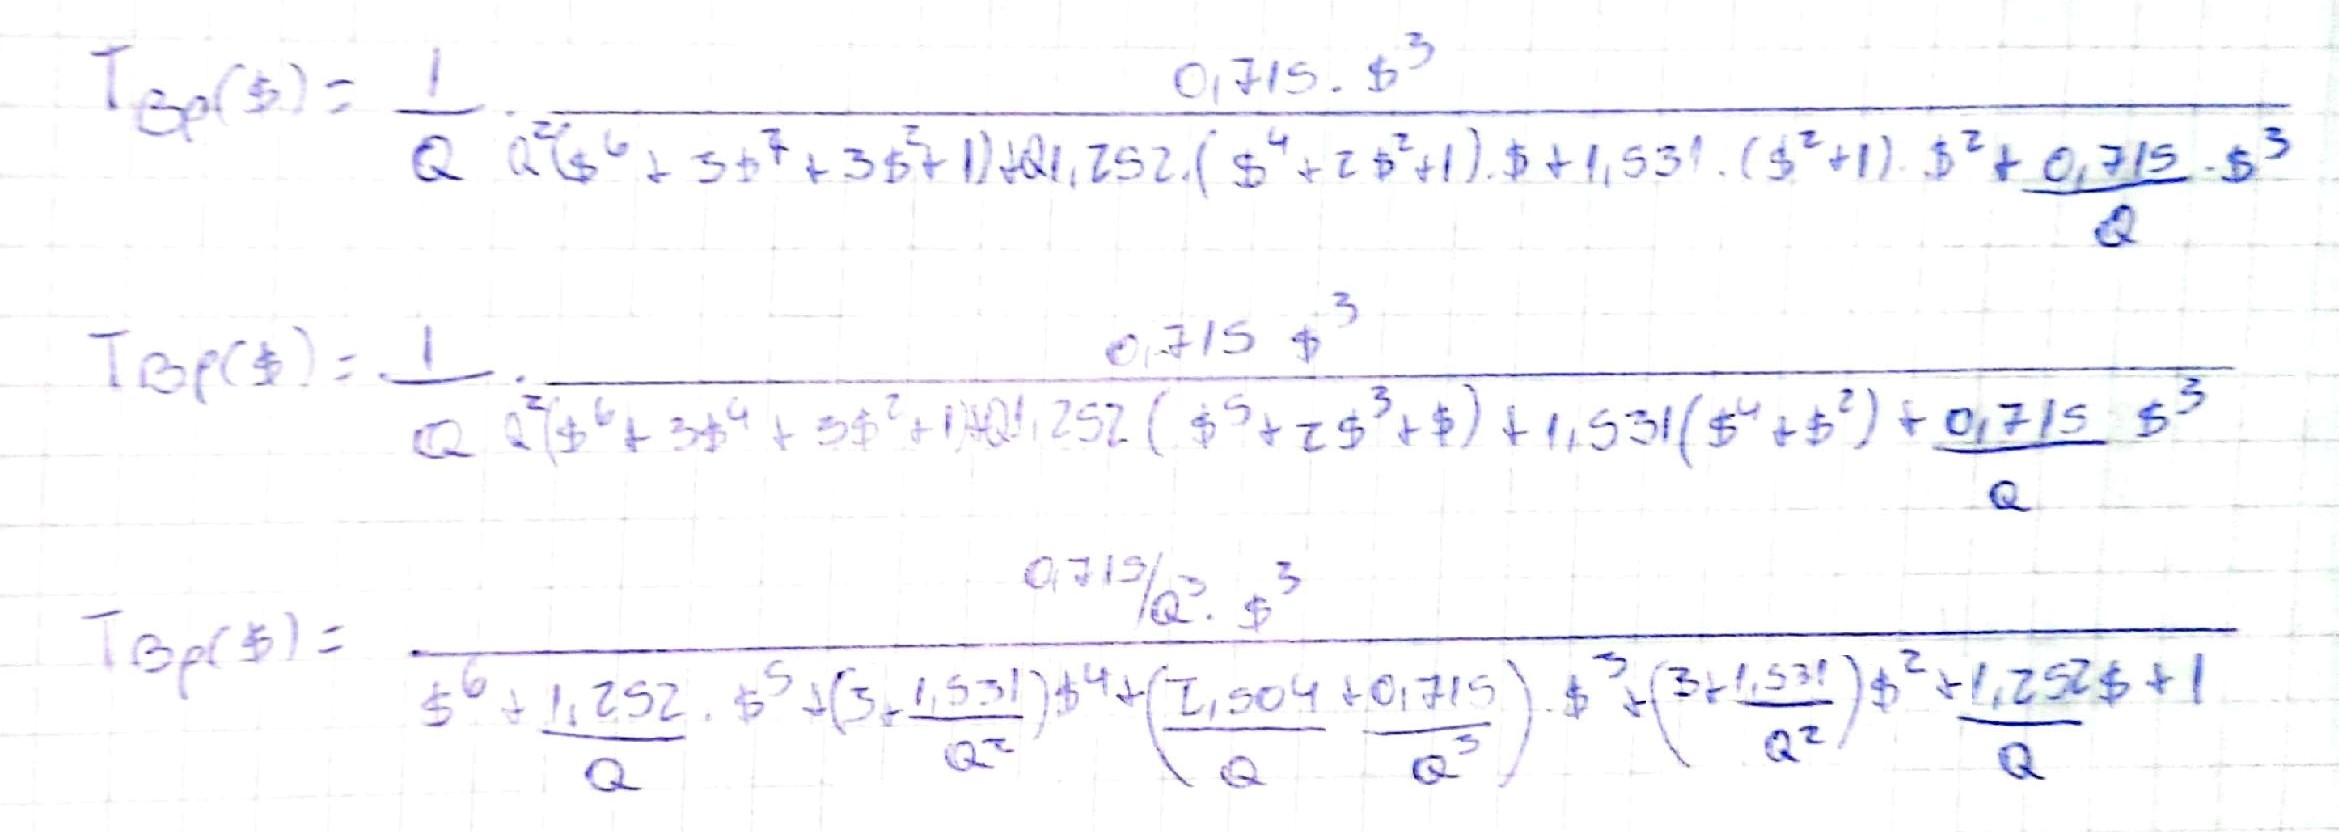 T_BP($) = 1/Q · (0,715 · $³) / (Q²($⁶ + 3$⁷ + 3$² + 1) + Q1,252 · ($⁴ + 2$² + 1) · $ + 1,531 · ($² + 1) · $² + 0,715/Q · $³)
T_BP($) = 1/Q · (0,715 $³) / (Q²($⁶ + 3$⁴ + 3$² + 1) + Q1,252 ($⁵ + 2$³ + $) + 1,531($⁴ + $²) + 0,715/Q $³)
T_BP($) = (0,715/Q³ · $³) / ($⁶ + 1,252/Q · $⁵ + (3 + 1,531/Q²)$⁴ + (2,504/Q + 0,715/Q³) · $³ + (3 + 1,531/Q²)$² + 1,252/Q $ + 1)